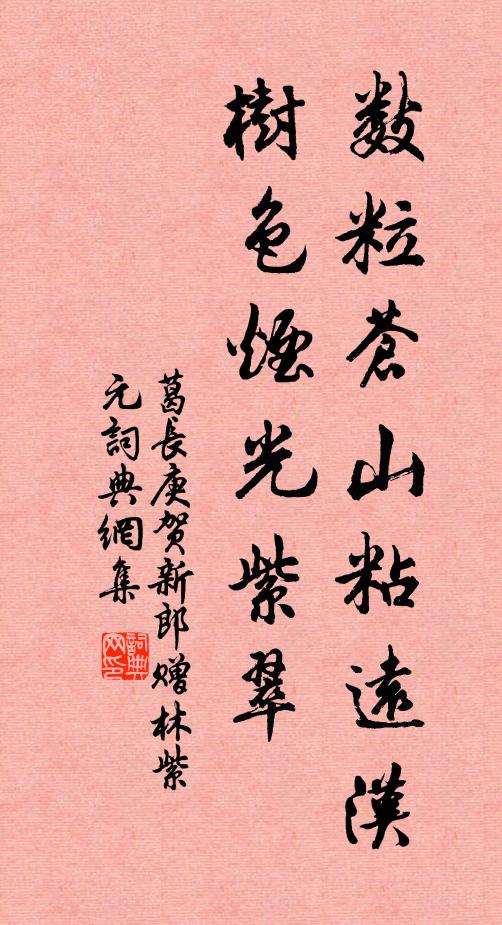 数粒蒼山粘遠漢
樹色煙光紫翠
葛長庚賀新郎贈林紫
元詞典網集
詞典
网印